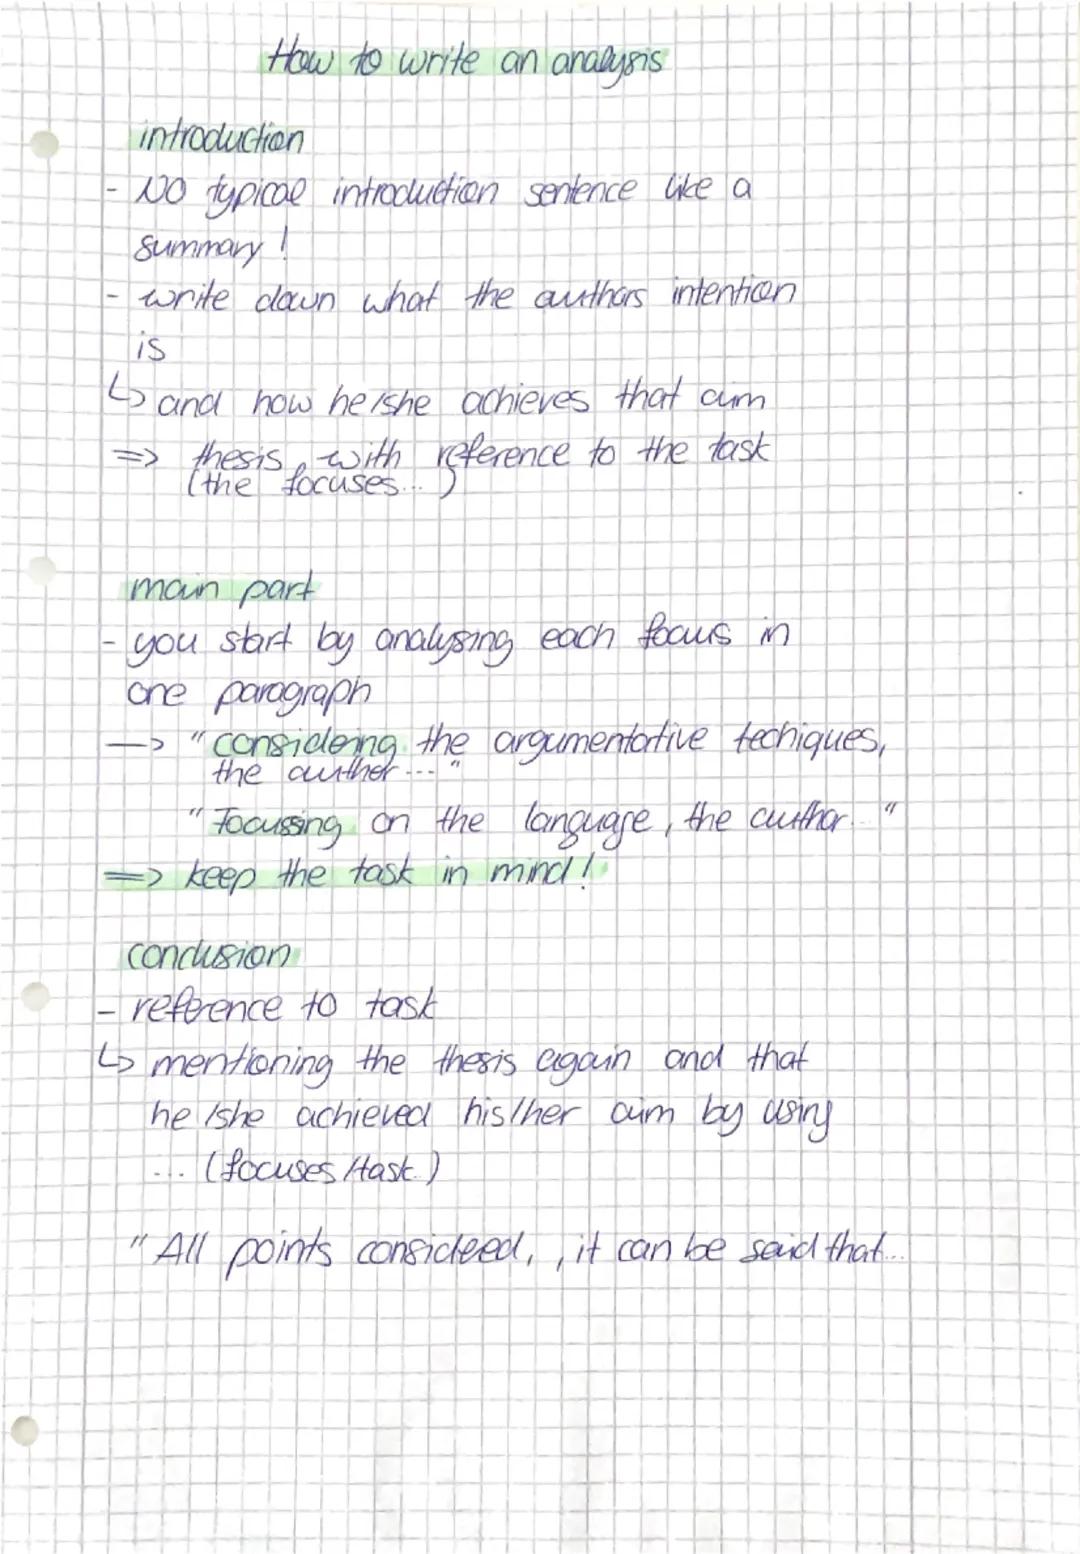 How to write an analysis
introduction
- NO typical introduction sentence like a
summary!
- write down what the authors intention
is
↳ and how he/she achieves that aim
=> thesis with reference to the task
(the focuses...)
main part
- you start by analysing each focus in
one paragraph
—> "considering the argumentative techiques,
the author ..."
"Focussing on the language, the author..."
=> keep the task in mind!
conclusion
- reference to task
↳ mentioning the thesis again and that
he/she achieved his/her aim by using
... (focuses/task.)
"All points consideed, , it can be said that...